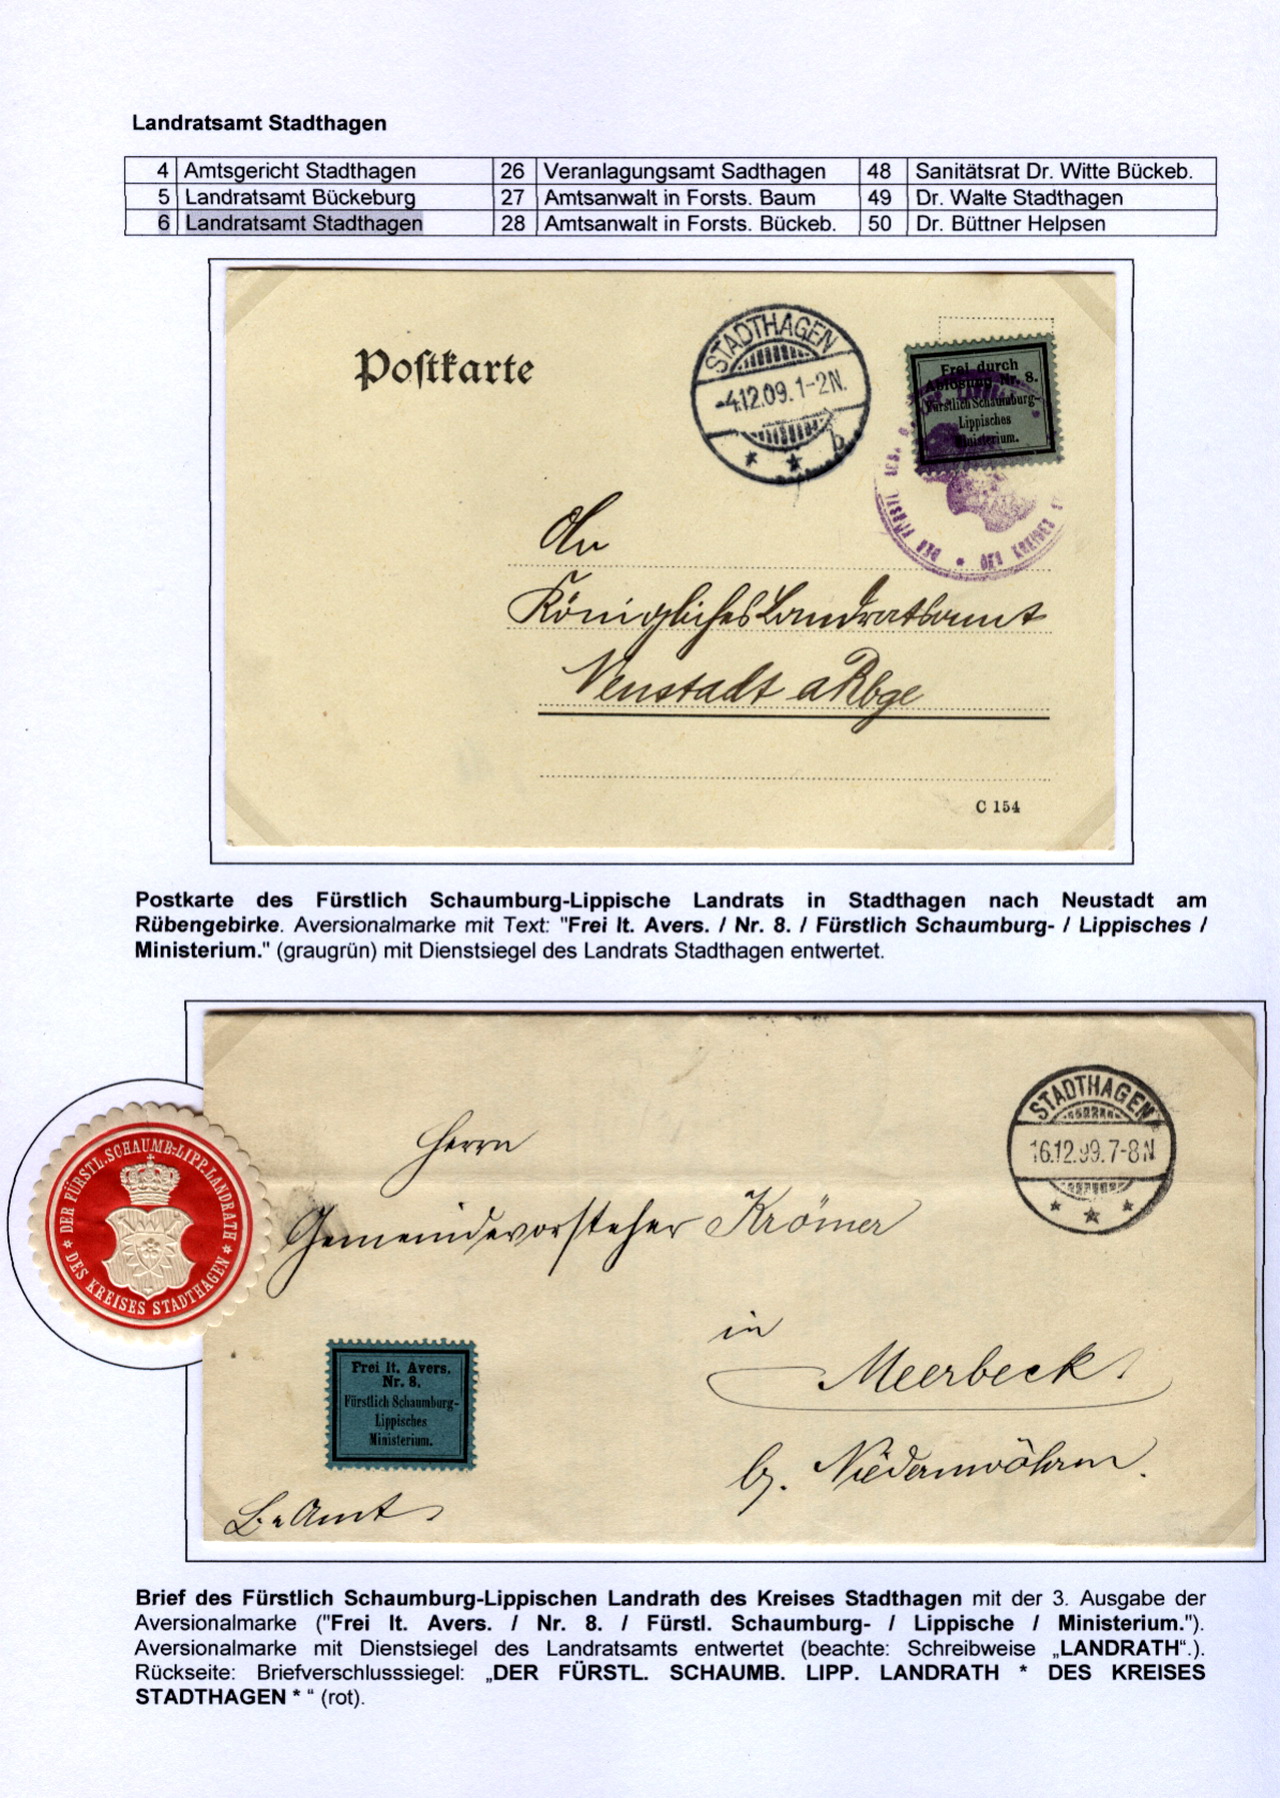 Landratsamt Stadthagen
4 Amtsgericht Stadthagen 26 Veranlagungsamt Sadthagen 48 Sanitätsrat Dr. Witte Bückeb.
5 Landratsamt Bückeburg 27 Amtsanwalt in Forsts. Baum 49 Dr. Walte Stadthagen
6 Landratsamt Stadthagen 28 Amtsanwalt in Forsts. Bückeb. 50 Dr. Büttner Helpsen
Postkarte
STADTHAGEN
-4.12.09.1-2N.
* * b
Frei durch
Ablösung Nr. 8.
Fürstlich Schaumburg-
Lippisches
Ministerium.
DER FÜRSTL
DES KREISES
An
Königliches Landratsamt
Neustadt a Rbge
C 154
Postkarte des Fürstlich Schaumburg-Lippische Landrats in Stadthagen nach Neustadt am
Rübengebirke. Aversionalmarke mit Text: "Frei lt. Avers. / Nr. 8. / Fürstlich Schaumburg- / Lippisches /
Ministerium." (graugrün) mit Dienstsiegel des Landrats Stadthagen entwertet.
STADTHAGEN
16.12.99.7-8N
* * *
Herrn
Gemeindevorsteher Krömer
in
Meerbeck
b/. Niedernwöhren.
DER FÜRSTL. SCHAUMB.-LIPP. LANDRATH
* DES KREISES STADTHAGEN *
Frei lt. Avers.
Nr. 8.
Fürstlich Schaumburg-
Lippisches
Ministerium.
L.=Amt
Brief des Fürstlich Schaumburg-Lippischen Landrath des Kreises Stadthagen mit der 3. Ausgabe der
Aversionalmarke ("Frei lt. Avers. / Nr. 8. / Fürstl. Schaumburg- / Lippische / Ministerium.").
Aversionalmarke mit Dienstsiegel des Landratsamts entwertet (beachte: Schreibweise „LANDRATH“.).
Rückseite: Briefverschlusssiegel: „DER FÜRSTL. SCHAUMB. LIPP. LANDRATH * DES KREISES
STADTHAGEN * “ (rot).